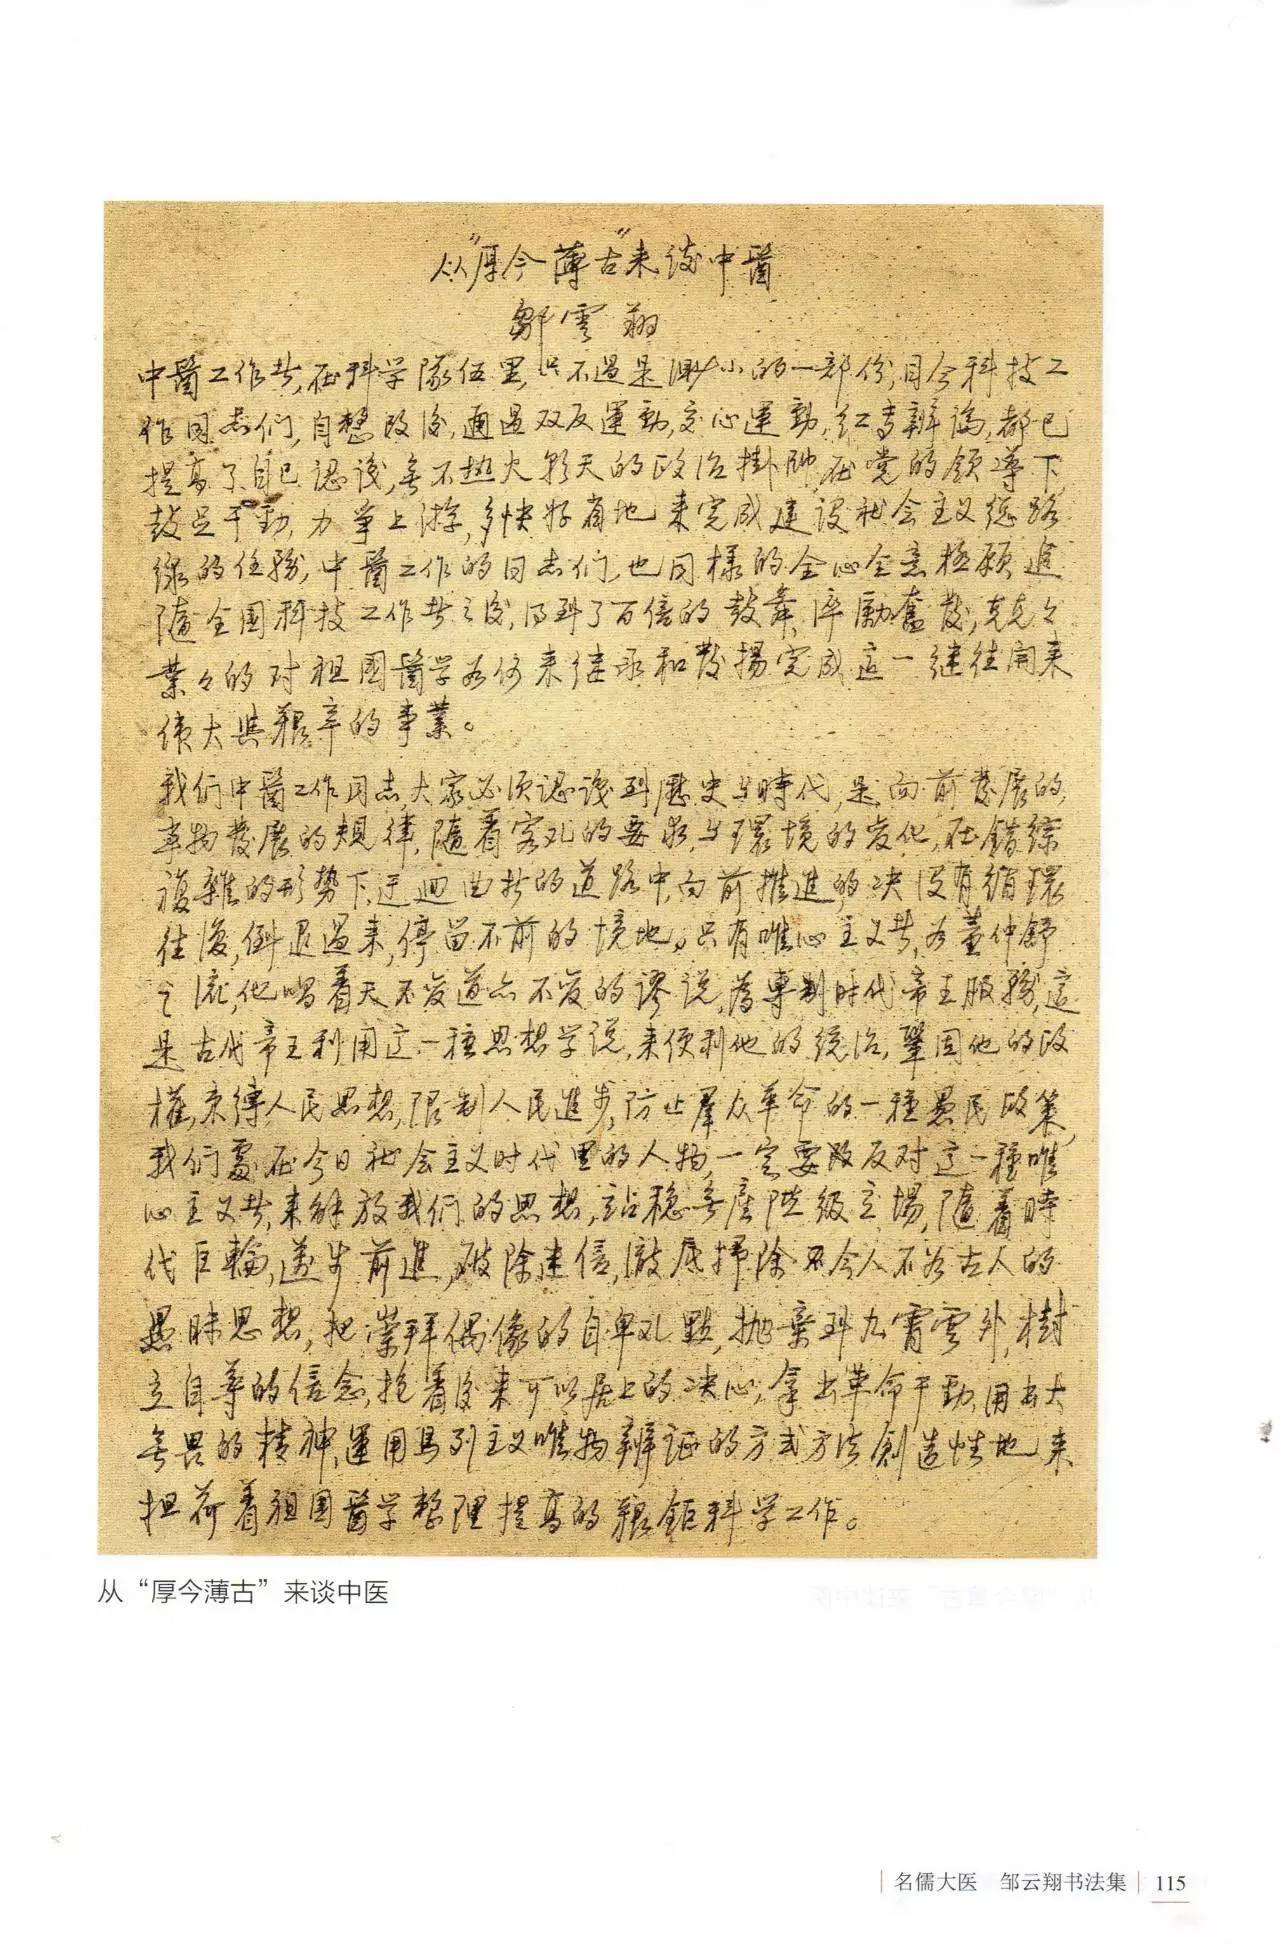 从"厚今薄古"来谈中醫
鄒雲翔
中醫工作者,在科学隊伍里,只不过是渺小的一部份,目今科技工
作同志们,自整改后,通过双反運動,交心運動,红专辩論,都已
提高了自已認識,無不热火朝天的政治掛帥,在党的领導下,
鼓足干勁,力爭上游,多快好省地来完成建設社会主义总路
线的任務,中醫工作的同志们,也同樣的全心全意極願追
隨全國科技工作者之后,得到了百倍的鼓舞,淬勵奮發,兢兢々
業々的对祖國醫学如何来继承和發揚完成這一继往開来
偉大與艱辛的事業。
我们中醫工作同志,大家必须認識到歷史与時代,是向前發展的,
事物發展的規律,隨着客观的要求,与環境的变化,在錯綜
複雜的形势下,迂迴曲折的道路中,向前推進的,决没有循環
往復,倒退過来,停留不前的境地,只有唯心主义者,如董仲舒
之流,他唱着天不变道亦不变的謬説,為專制时代帝王服務,這
是古代帝王利用这一種思想学说,来便利他的统治,鞏固他的政
權,束縛人民思想,限制人民進步,防止羣众革命的一種愚民政策,
我们處在今日社会主义时代里的人物,一定要反对這一種唯
心主义者,来解放我们的思想,站稳無產階级立場,隨着時
代巨輪,邁步前進,破除迷信,澈底掃除今人不如古人的
愚昧思想,把崇拜偶像的自卑观點,抛棄到九霄雲外,樹
立自尊的信念,抱着后来可以居上的决心,拿出革命干勁,用出大
無畏的精神,運用馬列主义唯物辨证的方式方法創造性地来
担荷着祖国醫学整理提高的艱鉅科学工作。
从“厚今薄古”来谈中医
名儒大医 邹云翔书法集 115